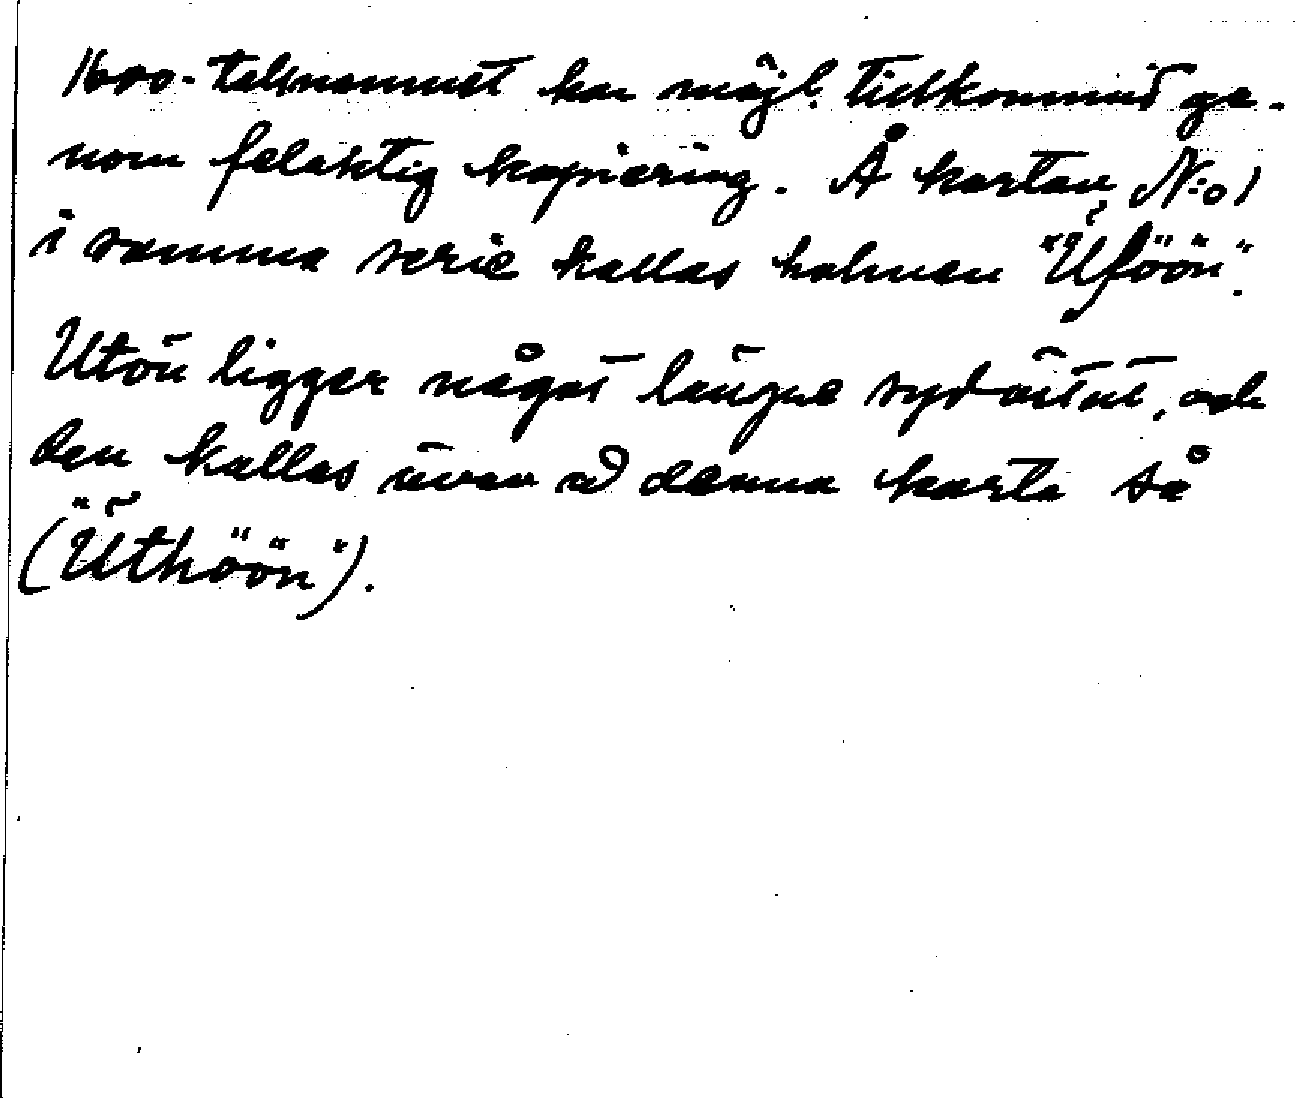 1600-talsnamnet har möjl. tillkommit ge-
nom felaktig kopiering. Å kartan N:o 1
i samma serie kallas holmen "Ŭföön".
Utön ligger något längre sydösterut, och
den kallas även å denna karta så
("Ŭthöön").